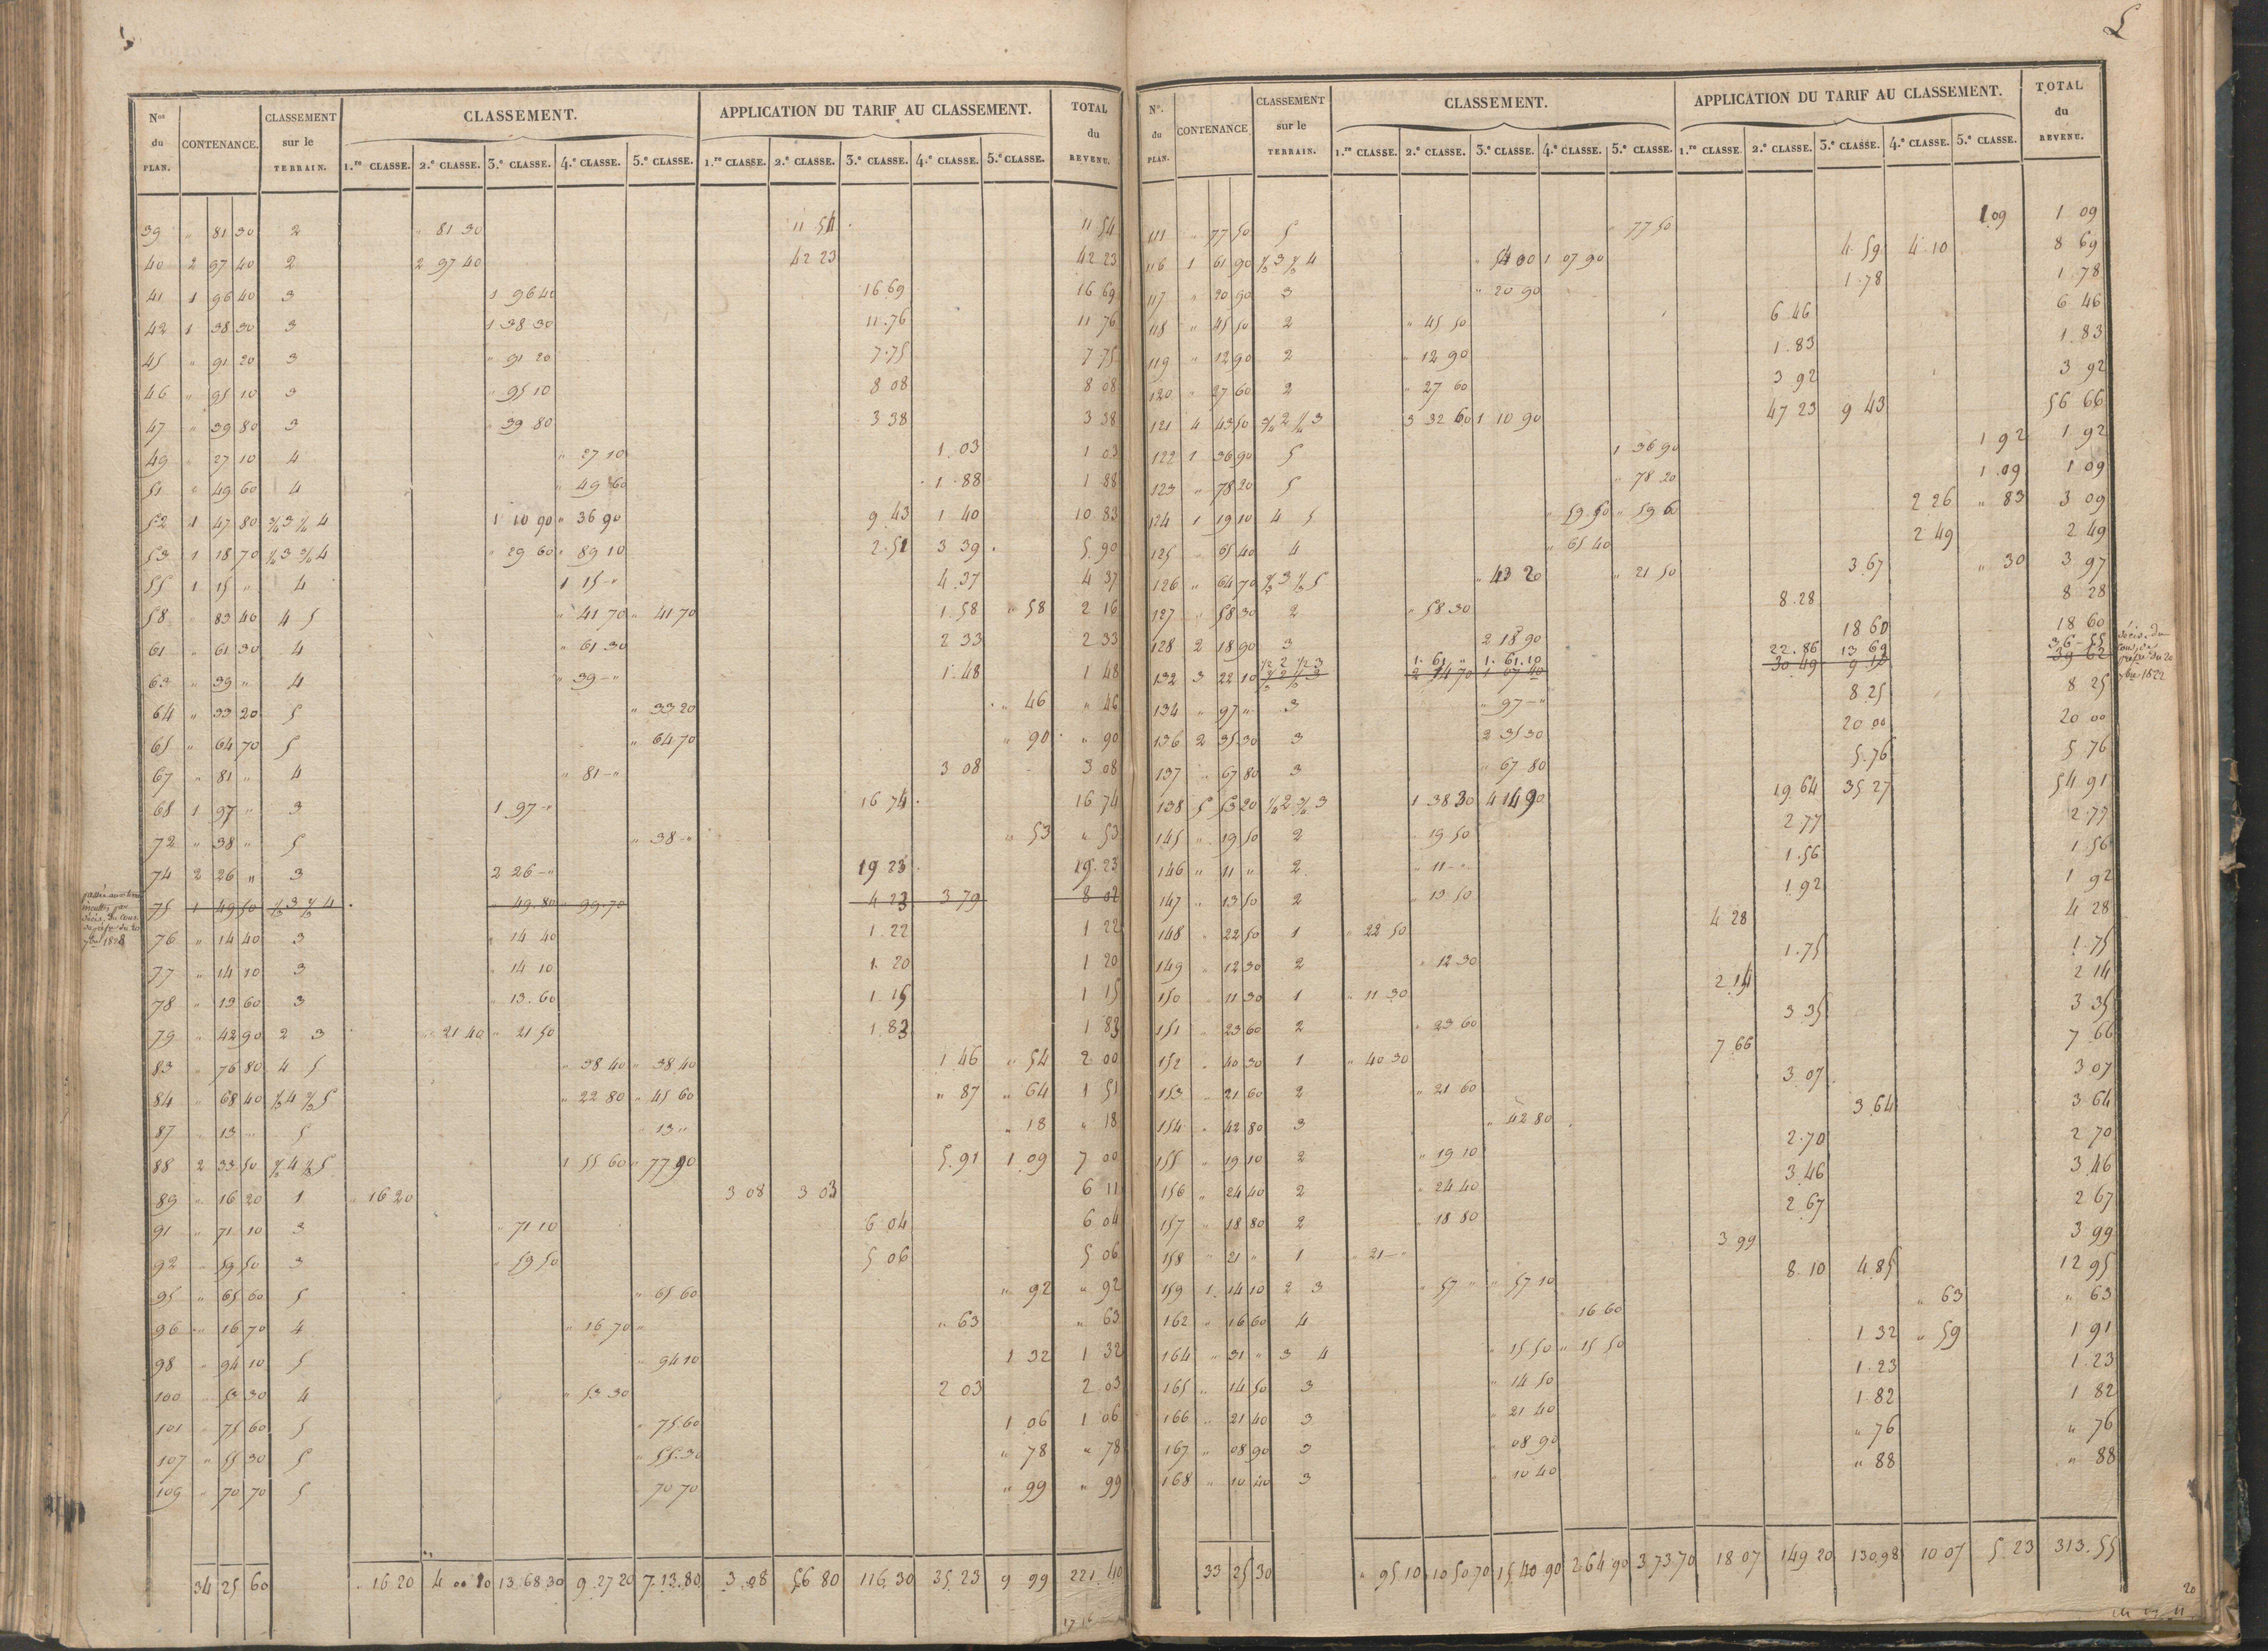 L
Nos du PLAN. CONTENANCE. CLASSEMENT sur le TERRAIN. CLASSEMENT. APPLICATION DU TARIF AU CLASSEMENT. TOTAL du REVENU.
1.re CLASSE. 2.e CLASSE. 3.e CLASSE. 4.e CLASSE. 5.e CLASSE. 1.re CLASSE. 2.e CLASSE. 3.e CLASSE. 4.e CLASSE. 5.e CLASSE.
39 " 81 30 2 " 81 30 11 54 11 54
40 2 97 40 2 2 97 40 42 23 42 23
41 1 96 40 3 1 96 40 16 69 16 69
42 1 38 30 3 1 38 30 11.76 11 76
45 " 91 20 3 " 91 20 7.75 7 75
46 " 95 10 3 " 95 10 8 08 8 08
47 " 39 80 3 " 39 80 3 38 3 38
49 " 27 10 4 " 27 10 1.03 1 03
51 " 49 60 4 " 49 60 1.88 1 88
52 1 47 80 3/4 3 1/4 4 1 10 90 " 36 90 9.43 1 40 10.83
53 1 18 70 1/4 3 3/4 4 " 29 60 " 89 10 2.51 3 39 5.90
55 1 15 " 4 1 15 - " 4.37 4 37
58 " 83 40 4 5 " 41 70 " 41 70 1.58 " 58 2 16
61 " 61 30 4 " 61 30 2 33 2 33
63 " 39 " 4 " 39 - " 1.48 1 48
64 " 33 20 5 " 33 20 " 46 " 46
65 " 64 70 5 " 64 70 " 90 " 90
67 " 81 " 4 " 81 - " 3 08 3 08
68 1 97 " 3 1 97 - " 16 74 16 74
72 " 38 " 5 " 38 - " " 53 " 53
74 2 26 " 3 2 26 - " 19 23 19.23
75 1 49 50 1/3 3 2/3 4 " 49.80 " 99.70 4 23 3 79 8 02
76 " 14 40 3 " 14 40 1.22 1 22
77 " 14 10 3 " 14 10 1.20 1 20
78 " 13 60 3 " 13.60 1.15 1 15
79 " 42 90 2 3 " 21 40 " 21 50 1.83 1 83
83 " 76 80 4 5 " 38 40 " 38 40 1.46 " 54 2 00
84 " 68 40 1/3 4 2/3 5 " 22 80 " 45 60 " 87 " 64 1 51
87 " 13 " 5 " 13 " " 18 " 18
88 2 33 50 2/3 4 1/3 5 1 55 60 " 77 90 5.91 1.09 7 00
89 " 16 20 1 " 16 20 3 08 3 03 6 11
91 " 71 10 3 " 71 10 6.04 6 04
92 " 59 50 3 " 59 50 5 06 5 06
95 " 65 60 5 " 65 60 " 92 " 92
96 " 16 70 4 " 16 70 " " 63 " 63
98 " 94 10 5 " 94 10 1 32 1 32
100 " 53 30 4 " 53 30 2 03 2 03
101 " 75 60 5 " 75.60 1 06 1 06
107 " 55 30 5 " 55.30 " 78 " 78
109 " 70 70 5 70 70 " 99 " 99
34 25 60 " 16 20 4 00 20 13.68 30 9.27 20 7.13.80 3.08 56 80 116.30 35.23 9 99 221.40
No. du PLAN. CONTENANCE CLASSEMENT sur le TERRAIN. CLASSEMENT. APPLICATION DU TARIF AU CLASSEMENT. TOTAL du REVENU.
1.re CLASSE. 2.e CLASSE. 3.e CLASSE. 4.e CLASSE. 5.e CLASSE. 1.re CLASSE. 2.e CLASSE. 3.e CLASSE. 4.e CLASSE. 5.e CLASSE.
111 " 77 50 5 " 77 50 1.09 1 09
116 1 61 90 1/3 3 2/3 4 " 54 00 1 07 90 4.59 4 10 8 69
117 " 20 90 3 " 20 90 1.78 1.78
118 " 45 50 2 " 45 50 6.46 6 46
119 " 12 90 2 " 12 90 1.83 1.83
120 " 27 60 2 " 27 60 3 92 3 92
121 4 43 50 3/4 2 1/4 3 3 32 60 1 10 90 47 23 9 43 56 66
122 1 36 90 5 1 36 90 1 92 1 92
123 " 78 20 5 " 78.20 1.09 1 09
124 1 19 10 4 5 " 59 50 " 59 60 2 26 " 83 3 09
125 " 65 40 4 " 65 40 2 49 2 49
126 " 64 70 2/3 3 1/3 5 " 43 20 " 21 50 3.67 " 30 3 97
127 " 58 30 2 " 58 30 8.28 8 28
128 2 18 90 3 2 18 90 18 60 18 60
1/2 2 1/2 3 1.61 " 1.61.10 22.86 13 69 36-55
132 3 22 10 2/3 2 1/3 3 2 14 70 1 07 40 30 49 9 13 39 62
134 " 97 " 3 " 97 - " 8.25 8 25
136 2 35 30 3 2 35 30 20 00 20 00
137 " 67 80 3 " 67 80 5.76 5 76
138 5 53 20 1/4 2 3/4 3 1 38 30 4 14 90 19.64 35 27 54 91
145 " 19 50 2 " 19 50 2.77 2.77
146 " 11 " 2 " 11 - " 1.56 1.56
147 " 13 50 2 " 13 50 1.92 1 92
148 " 22 50 1 " 22 50 4 28 4 28
149 " 12 30 2 " 12 30 1.75 1.75
150 " 11 30 1 " 11 30 2.14 2 14
151 " 23 60 2 " 23 60 3 35 3 35
152 " 40 30 1 " 40 30 7 66 7 66
153 " 21 60 2 " 21 60 3.07 3 07
154 " 42 80 3 " 42 80 3 64 3 64
155 " 19 10 2 " 19 10 2.70 2 70
156 " 24 40 2 " 24 40 3.46 3.46
157 " 18 80 2 " 18 80 2.67 2 67
158 " 21 " 1 " 21 - " 3 99 3 99
159 1 14 10 2 3 " 57 " " 57 10 8.10 4.85 12 95
162 " 16 60 4 " 16 60 " 63 " 63
164 " 31 " 3 4 " 15 50 " 15 50 1 32 " 59 1 91
165 " 14 50 3 " 14 50 1.23 1.23
166 " 21 40 3 " 21 40 1.82 1 82
167 " 08 90 3 " 08 90 " 76 " 76
168 " 10 40 3 " 10 40 " 88 " 88
33 25 30 " 95.10 10 50 70 15.40 90 2 64 90 3.73.70 18 07 149 20 130.98 10 07 5.23 313.55
20